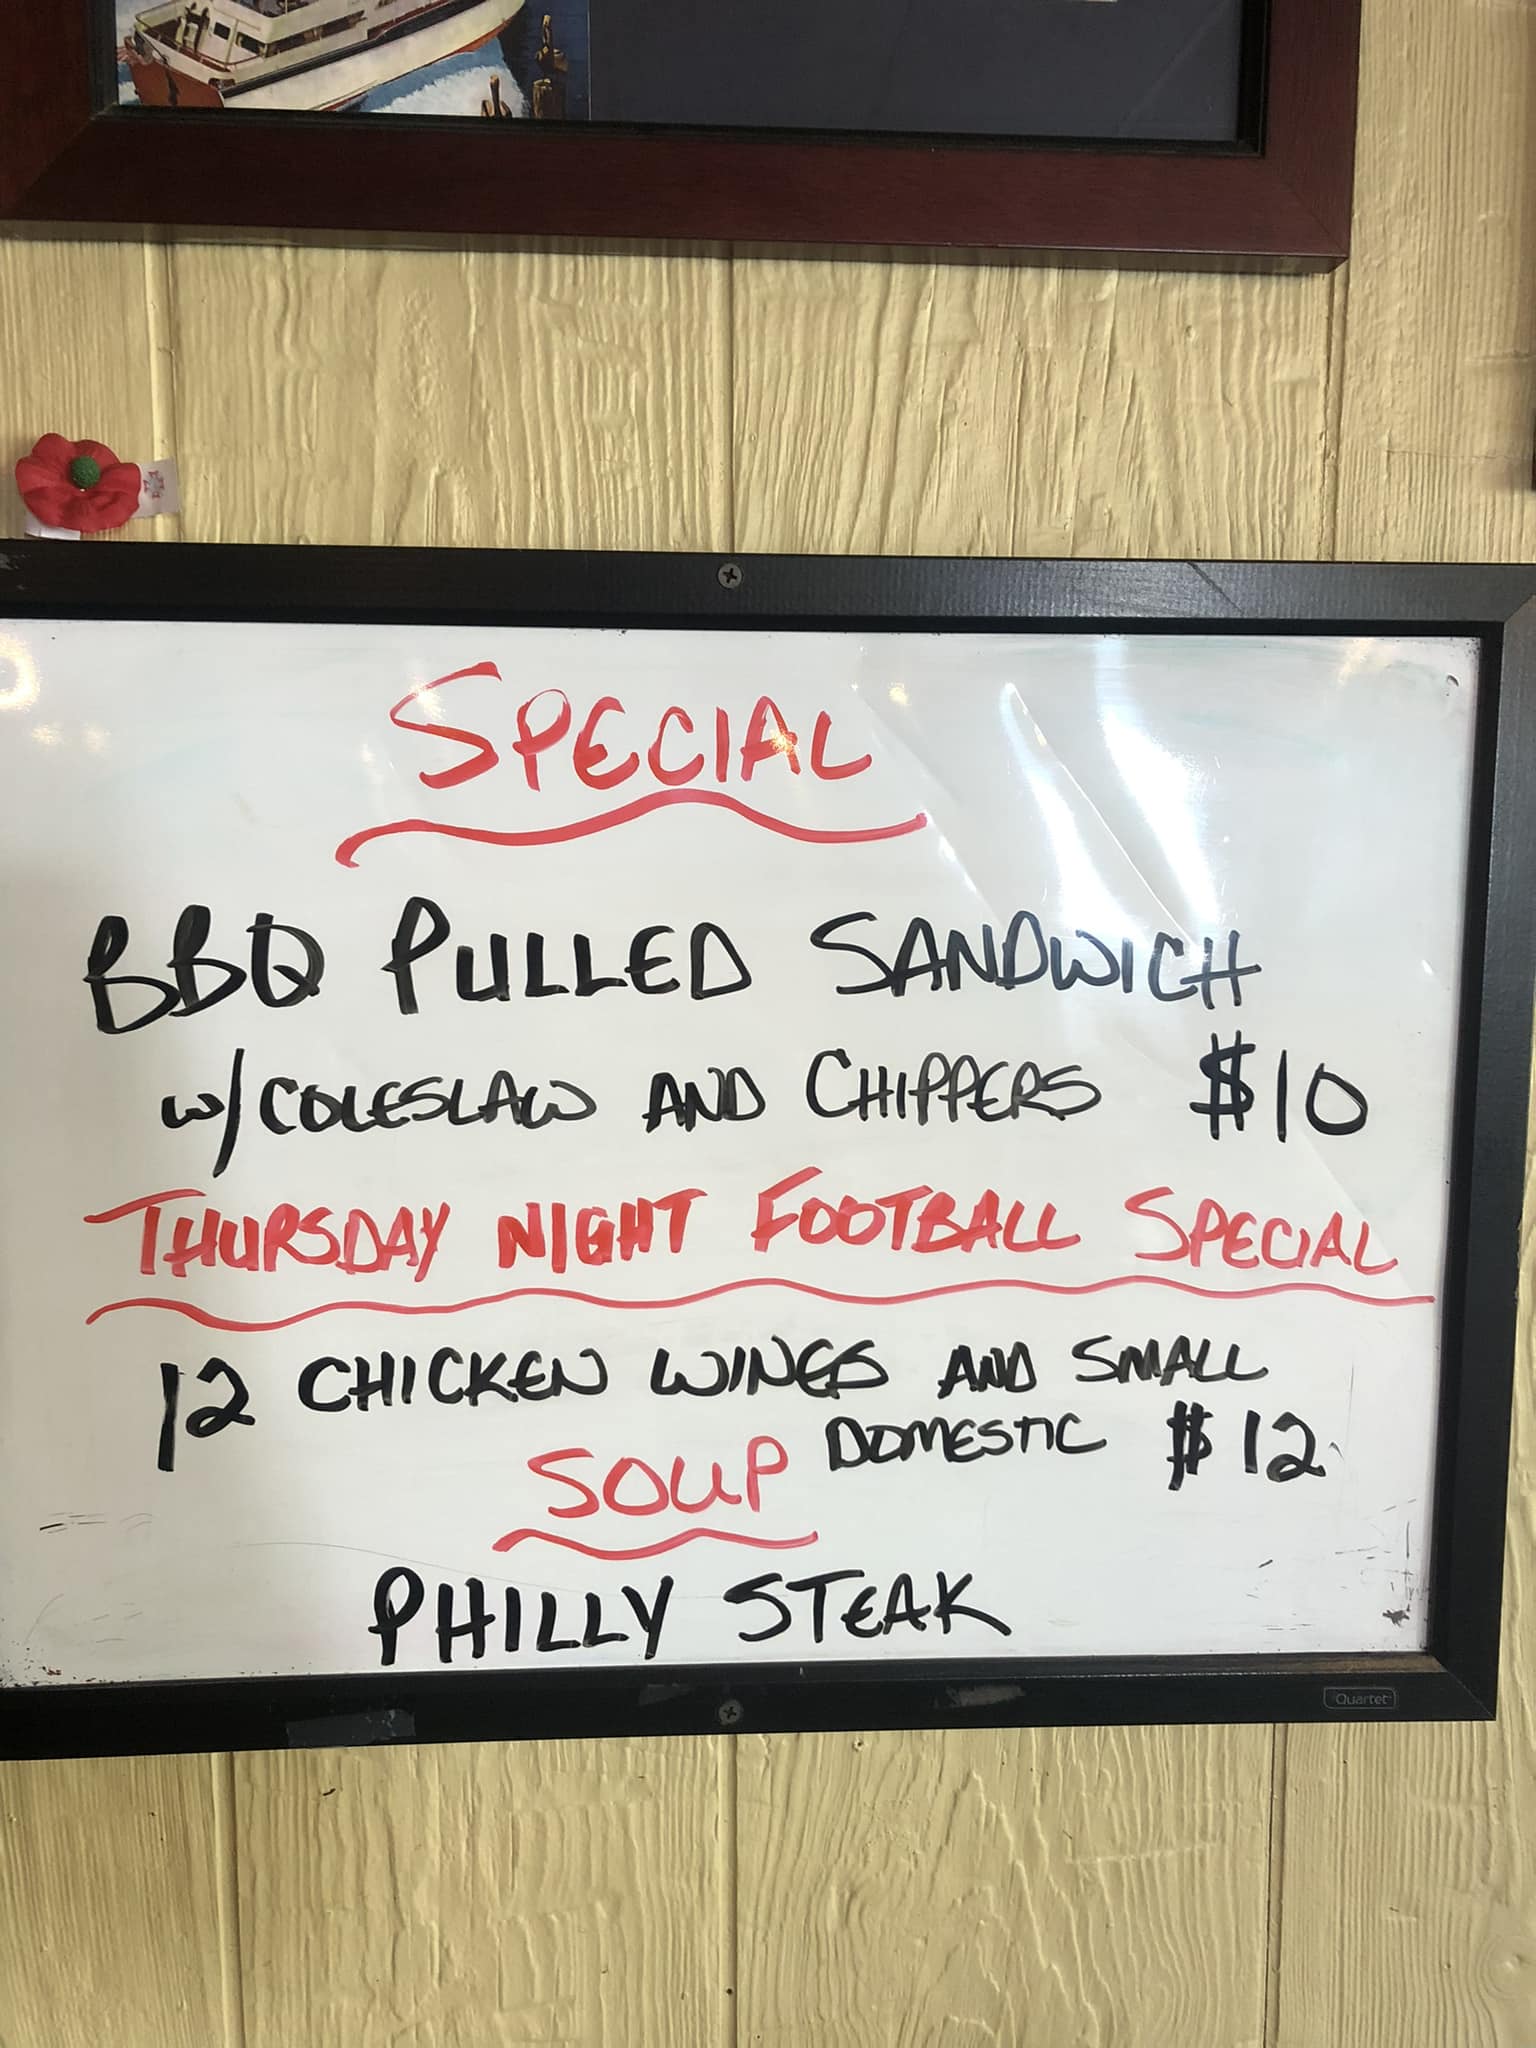 SPECIAL
BBQ PULLED SANDWICH
w/COLESLAW AND CHIPPERS $10
THURSDAY NIGHT FOOTBALL SPECIAL
12 CHICKEN WINGS AND SMALL
DOMESTIC $12
SOUP
PHILLY STEAK
Quartet